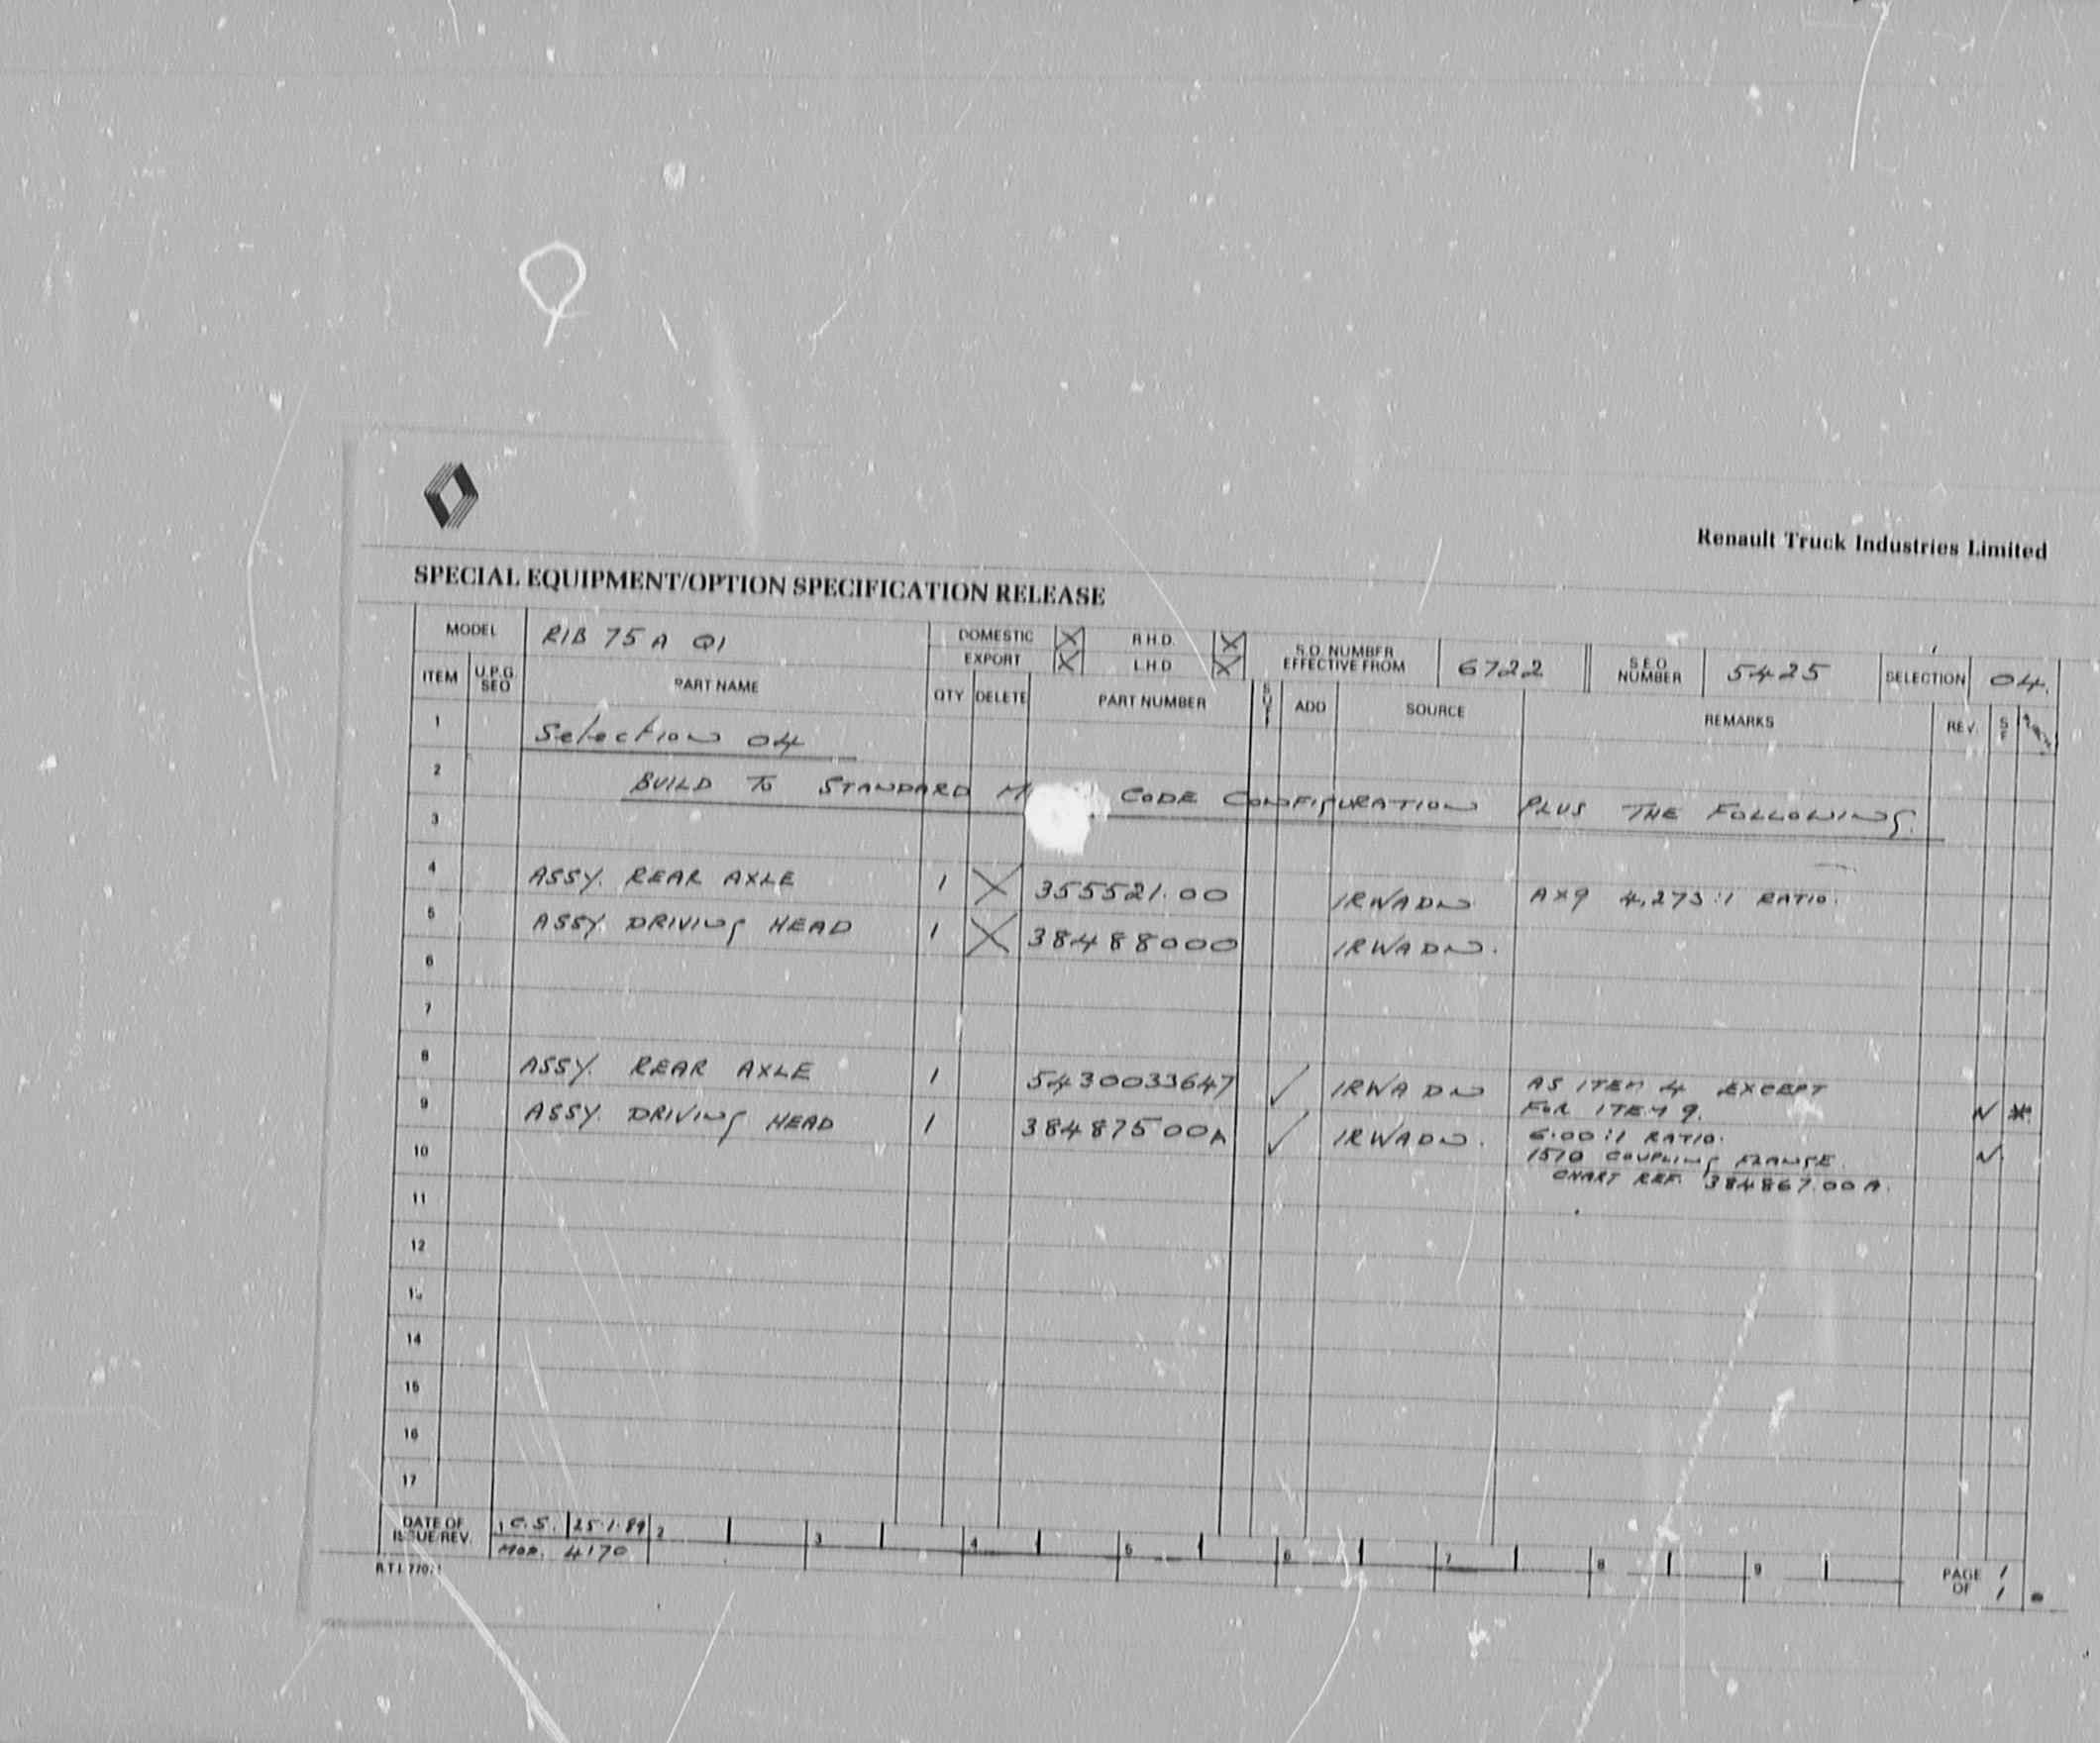 Renault Truck Industries Limited
SPECIAL EQUIPMENT/OPTION SPECIFICATION RELEASE
MODEL R1B 75 A Q1 DOMESTIC X R.H.D. X S.O. NUMBER EFFECTIVE FROM 6722 S.E.O NUMBER 5425 SELECTION 04.
EXPORT X L.H.D X
ITEM U.P.G. SEO PART NAME QTY DELETE PART NUMBER ADD SOURCE REMARKS REV. S F
1 Selection 04
2 BUILD TO STANDARD M CODE CONFIGURATION PLUS THE FOLLOWING.
3
4 ASSY. REAR AXLE 1 X 355521.00 IRWADN AX9 4,273:1 RATIO.
5 ASSY. DRIVING HEAD 1 X 38488000 IRWADN.
6
7
8 ASSY. REAR AXLE 1 5430033647 ✓ IRWADN AS ITEM 4 EXCEPT
FOR ITEM 9. N *
9 ASSY. DRIVING HEAD 1 38487500A ✓ IRWADN. 6.00:1 RATIO.
10 1570 COUPLING FLANGE. N.
CHART REF. 384867.00A.
11
12
14
15
16
17
DATE OF ISSUE/REV. 1 C.S. 25.1.89 2 3 4 5 6 7 8 9 PAGE 1
MOD. 4170 OF 1